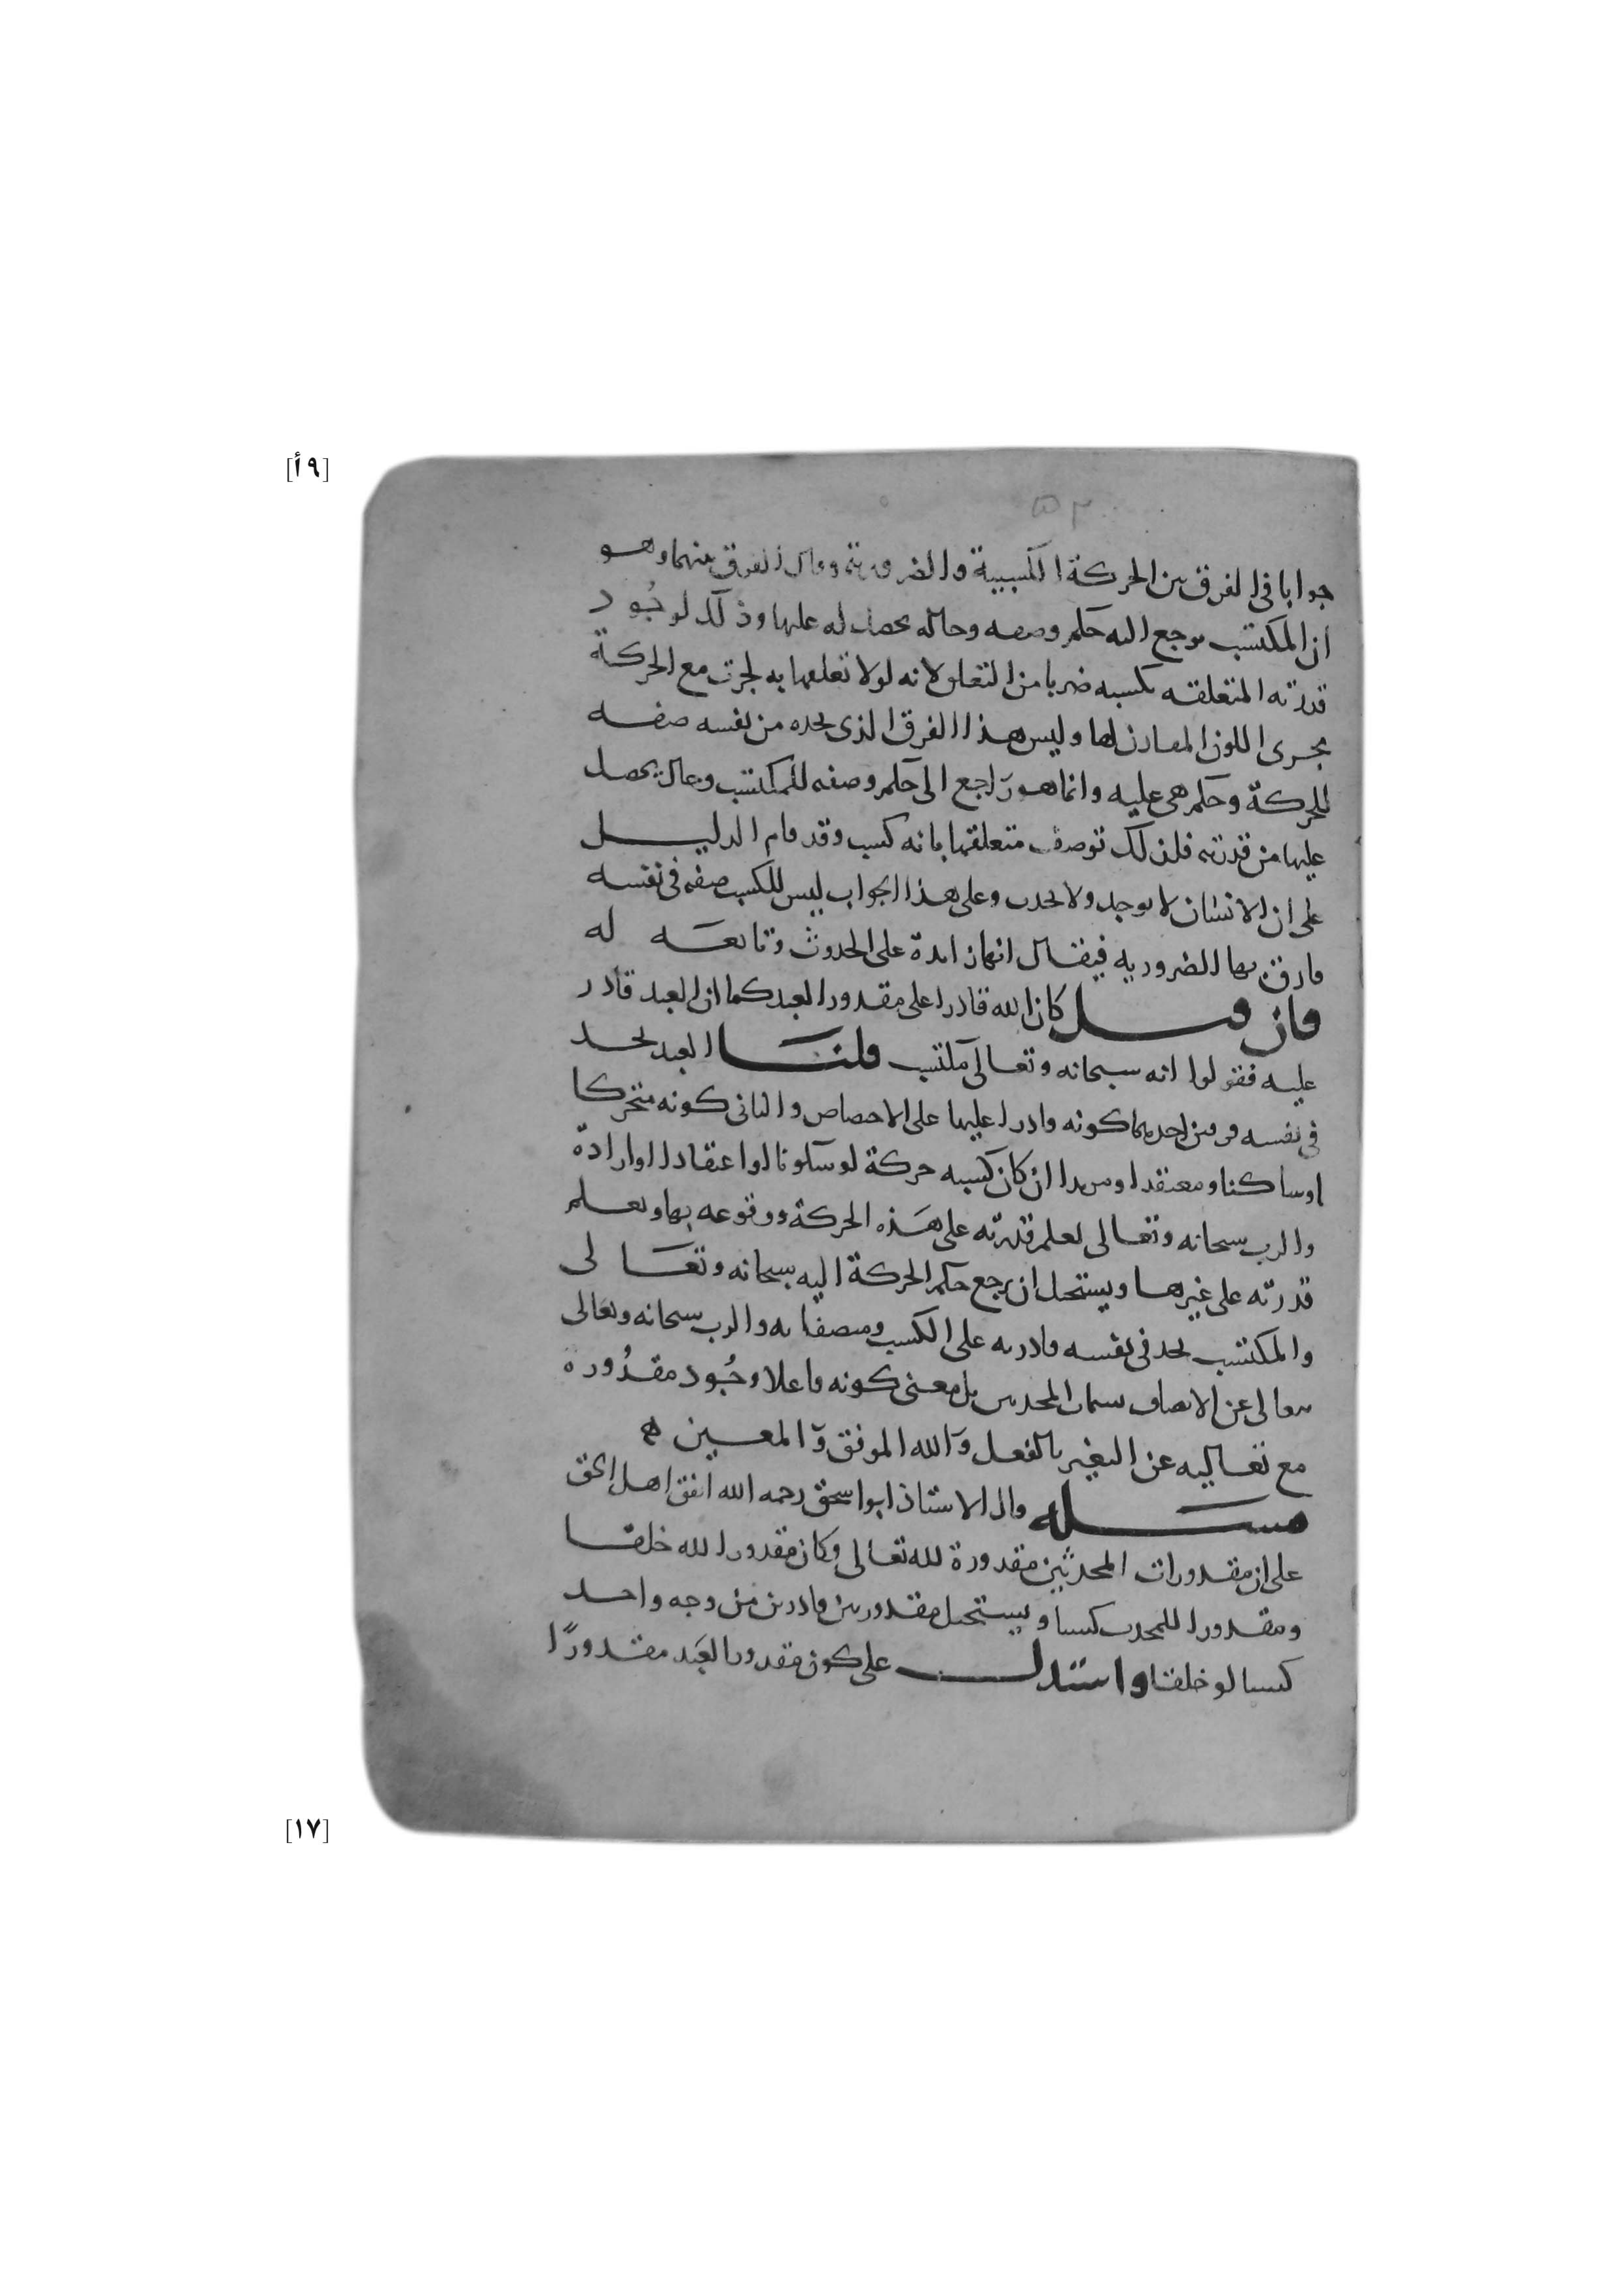 [٩أ]
جوابا في الفرق بين الحركة الكسبية والضرورية وقال الفرق بينهما وهو
ان المكتسب يرجع اليه حكم وصفه وحاله يحصل له عليها وذلك لوجُود
قدرته المتعلقه بكسبه ضربا من التعلق لانه لولا تعلقها به لجرت مع الحركة
مجرى اللون المقارن لها وليس هذا الفرق الذى يجده من نفسه صفه
للحركة وحكم هى عليه وانما هو راجع الى حكم وصفه للمكتسب وحال يحصل
عليها من قدرته فلذلك توصف متعلقها بانه كسب وقد قام الدليل
على ان الانسان لا يوجد ولا يحدث وعلى هذا الجواب ليس للكسب صفه فى نفسه
فارق بها الضروريه فيقال انها زايدة على الحدوث وتابعه له
فان قيل كان الله قادرا على مقدور العبد كما ان العبد قادر
عليه فقولوا انه سبحانه وتعالى مكتسب قلنا العبد يجد
فى نفسه امرين احدهما كونه قادرا عليها على الاختصاص والثانى كونه متحركا
او ساكنا ومعتقدا ومريدا ان كان كسبه حركة او سكونا او اعتقادا او ارادة
والرب سبحانه وتعالى يعلم قدرته على هذه الحركة ووقوعه بها ويعلم
قدرته على غيرها ويستحيل ان يرجع حكم الحركة اليه سبحانه وتعالى
والمكتسب يجد فى نفسه قادريه على الكسب ومتصفا به والرب سبحانه وتعالى
يتعالى عن الاتصاف بسمات المحدثين بل معنى كونه فاعلا وجُود مقدُوره
مع تعاليه عن التغير بالفعل والله الموفق والمعين ه
مسـله قال الاستاذ ابو اسحق رحمه الله اتفق اهل الحق
على ان مقدورات المحدثين مقدورة لله تعالى وكان مقدورا لله خلقا
ومقدورا للمحدث كسبا ويستحيل مقدور بين قادرين من وجه واحد
كسبا او خلقا واستدل على كون مقدور العَبد مقدورًا
[١٧]